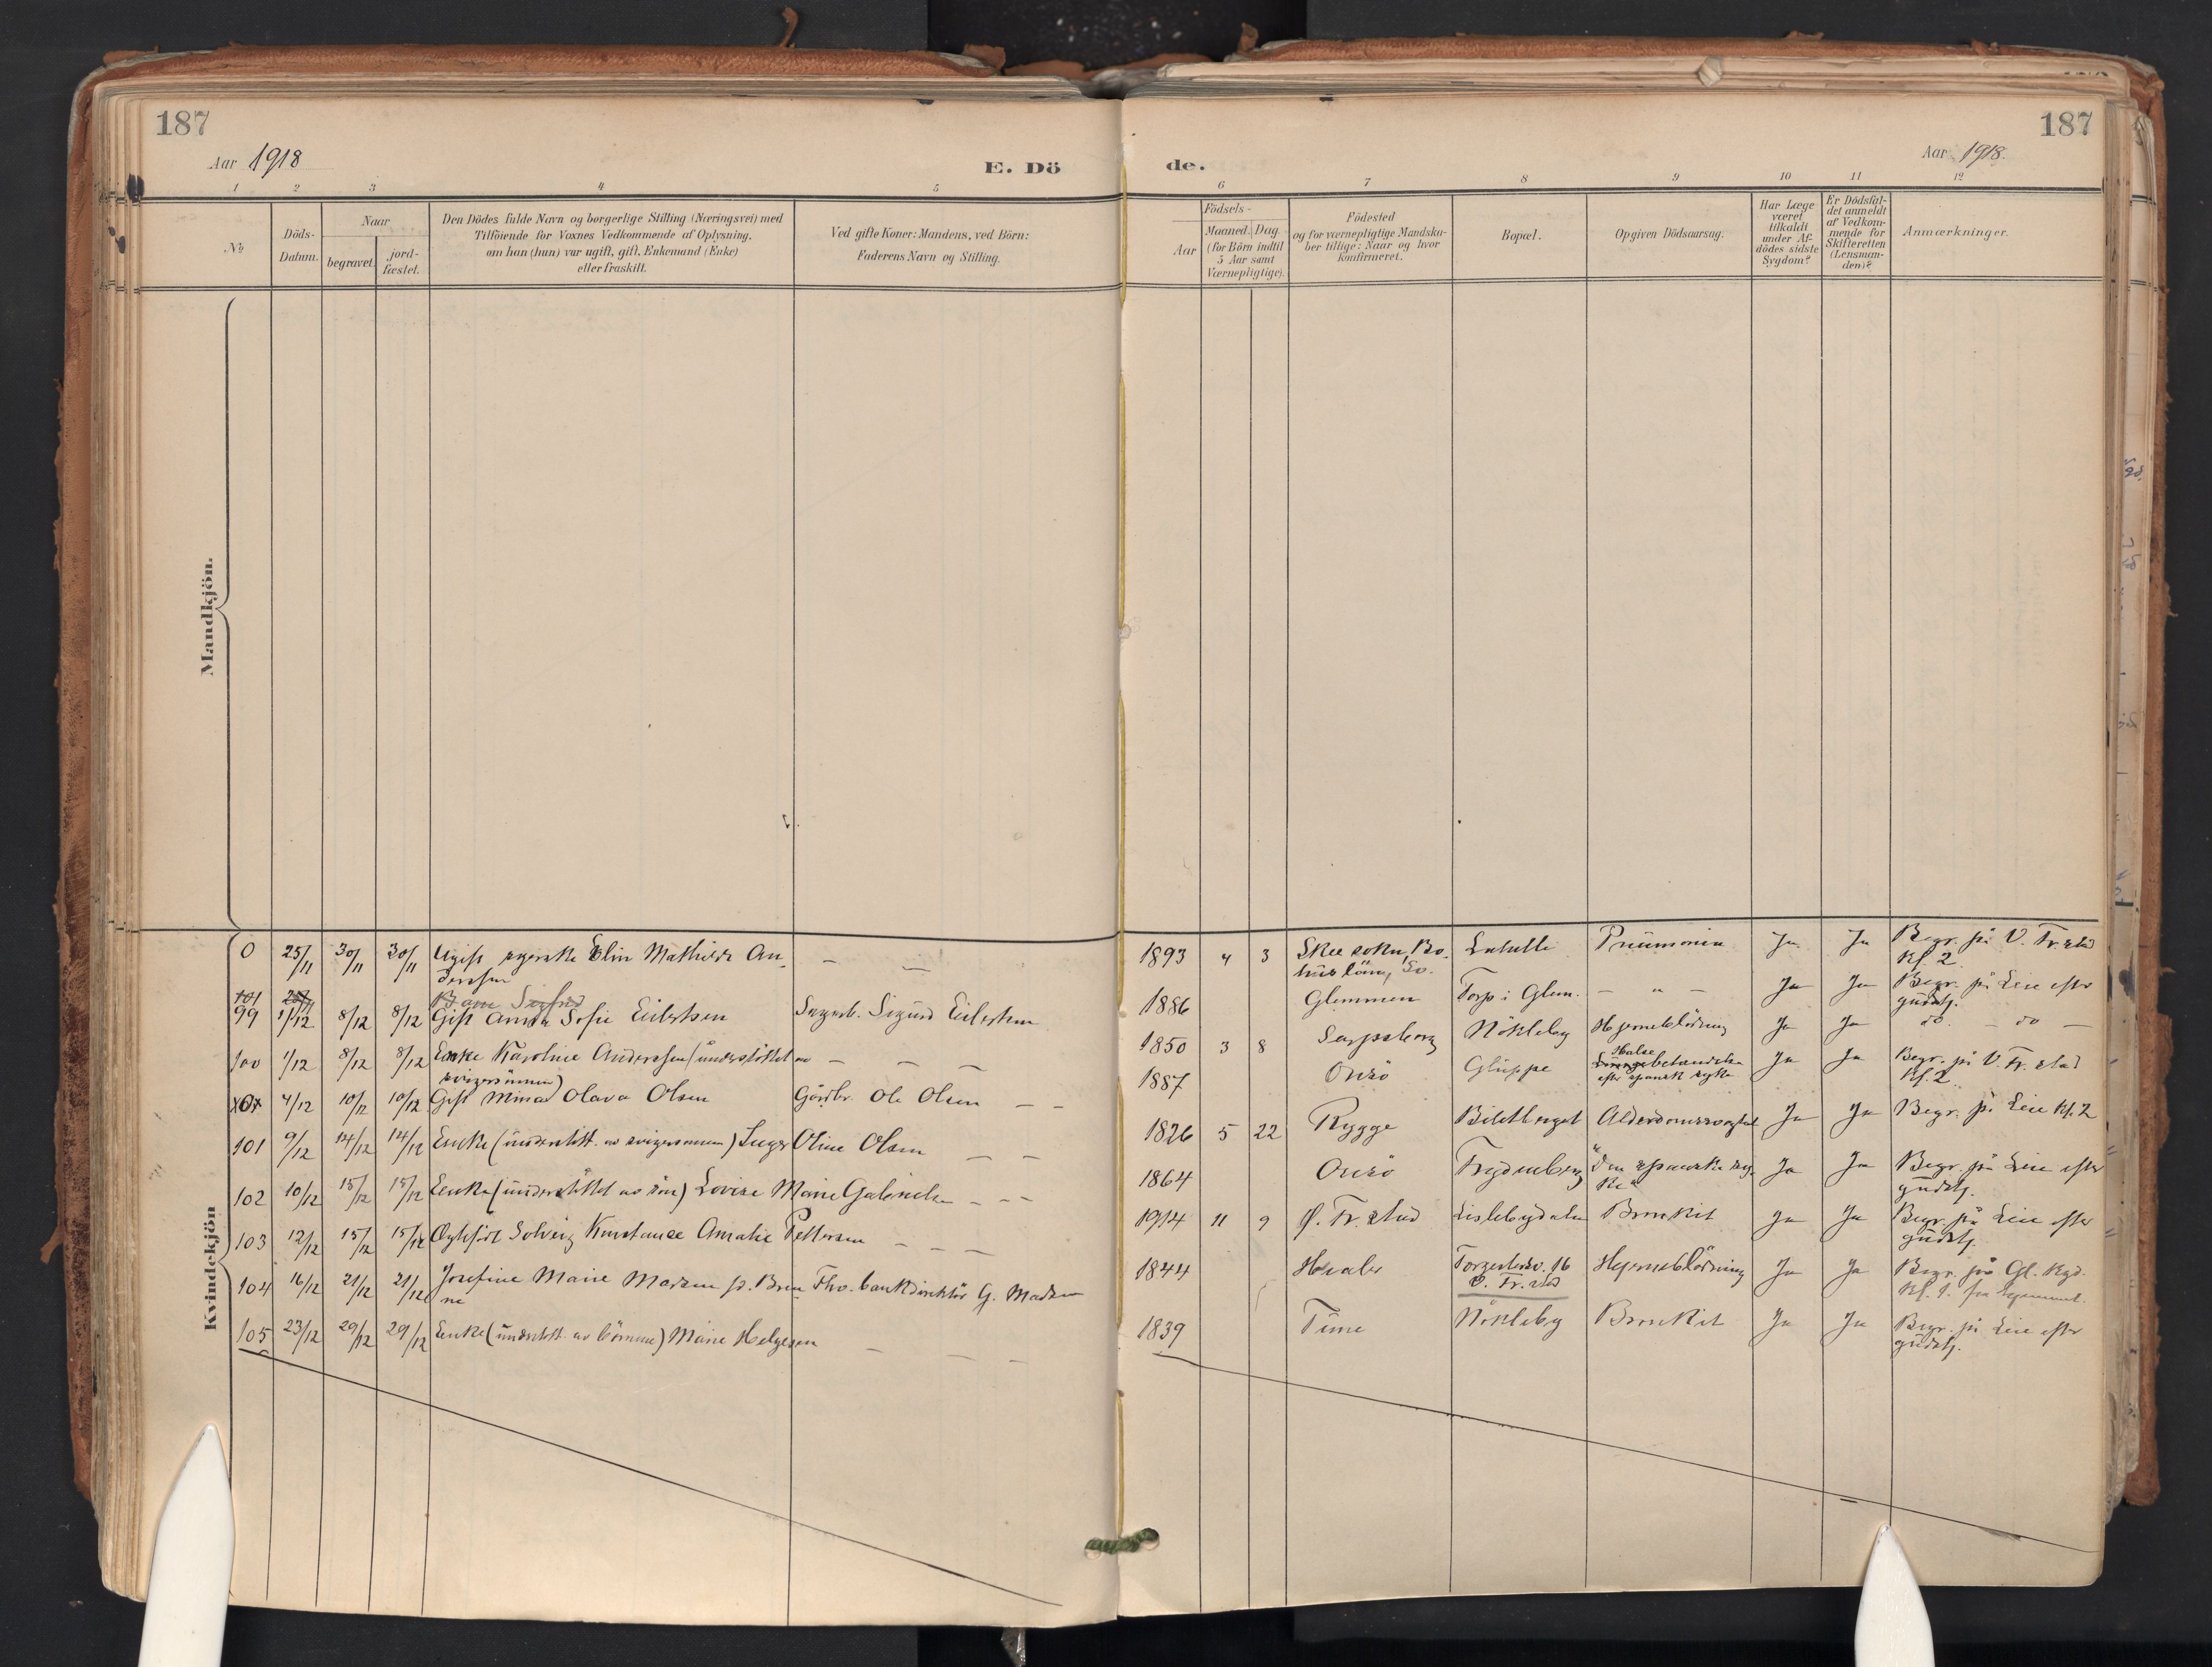 187
Aar 1918
E. Dö
1 2 3 4 5
No
Döds-
Datum.
Naar
begravet.
jord-
fæstet.
Den Dödes fulde Navn og borgerlige Stilling (Næringsvei) med
Tilföiende for Voxnes Vedkommende af Oplysning,
om han (hun) var ugift, gift, Enkemand (Enke)
eller fraskilt.
Ved gifte Koner: Mandens, ved Börn:
Faderens Navn og Stilling.
Mandkjön.
Kvindekjön
0 25/11 30/11 30/11 Ugift syerske Elin Mathilde An-
derssen
101
99 1/12 8/12 8/12 Gift Anna Sofie Eilertsen Sagarb. Sigurd Eilertsen
100 1/12 8/12 8/12 Enke Karoline Anderssen (understöttet av
svigersönnen)
4/12 10/12 10/12 Gift Minda Olava Olsen Gårdbr. Ole Olsen
101 9/12 14/12 14/12 Enke (understött. av svigersönnen) Inger Oline Olsen
102 10/12 15/12 15/12 Enke (understöttet av sön) Lovise Marie Gabrielsen
103 12/12 15/12 15/12 Solveig Konstance Amalie Pettersen
104 16/12 21/12 21/12 Josefine Marie Madsen f. Brun
ne Fhv. bankdirektör G. Madsen
105 23/12 29/12 29/12 Enke (understött. av börnene) Marie Helgesen
187
Aar 1918.
de.
6 7 8 9 10 11 12
Aar
Födsels-
Maaned. Dag.
(for Börn indtil
5 Aar samt
Værnepligtige).
Födested
og for værnepligtige Mandska-
ber tillige: Naar og hvor
konfirmeret.
Bopæl.
Opgiven Dödsaarsag.
Har Læge
været
tilkaldt
under Af-
dödes sidste
Sygdom?
Er Dödsfal-
det anmeldt
af Vedkom-
mende for
Skifteretten
(Lensman-
den)?
Anmærkninger.
1893 4 3 Skee sokn, Bo-
huslän, Sv. Pneumonie Ja Ja Begr. på V. Fr.stad
Kl. 2
1886 Glemmen Torp i Glem. – " – Ja Ja Begr. på Leie efter
gudstj.
1850 3 8 Sarpsborg Nökleby Hjerneblödning Ja Ja do – do –
1887 Onsö Gluppe Halse
betændelse
efter spansk syke Ja Ja Begr. på V. Fr.stad
Kl. 2
1826 5 22 Rygge Biletberget Alderdomssvaghet Ja Ja Begr. på Leie Kl. 2
1864 Onsö Frydenberg "Den spanske sy-
ke" Ja Ja Begr. på Leie efter
gudstj.
1914 11 9 Ø. Fr.stad Lislebydalen Bronkit Ja Ja Begr. på Leie efter
gudstj.
1844 Hvaler 16
Ø. Fr.stad Hjerneblödning Ja Ja Begr. på Gl. Kgd.
Kl. 1.
1839 Tune Nökleby Bronkit Ja Ja Begr. på Leie efter
gudstj.